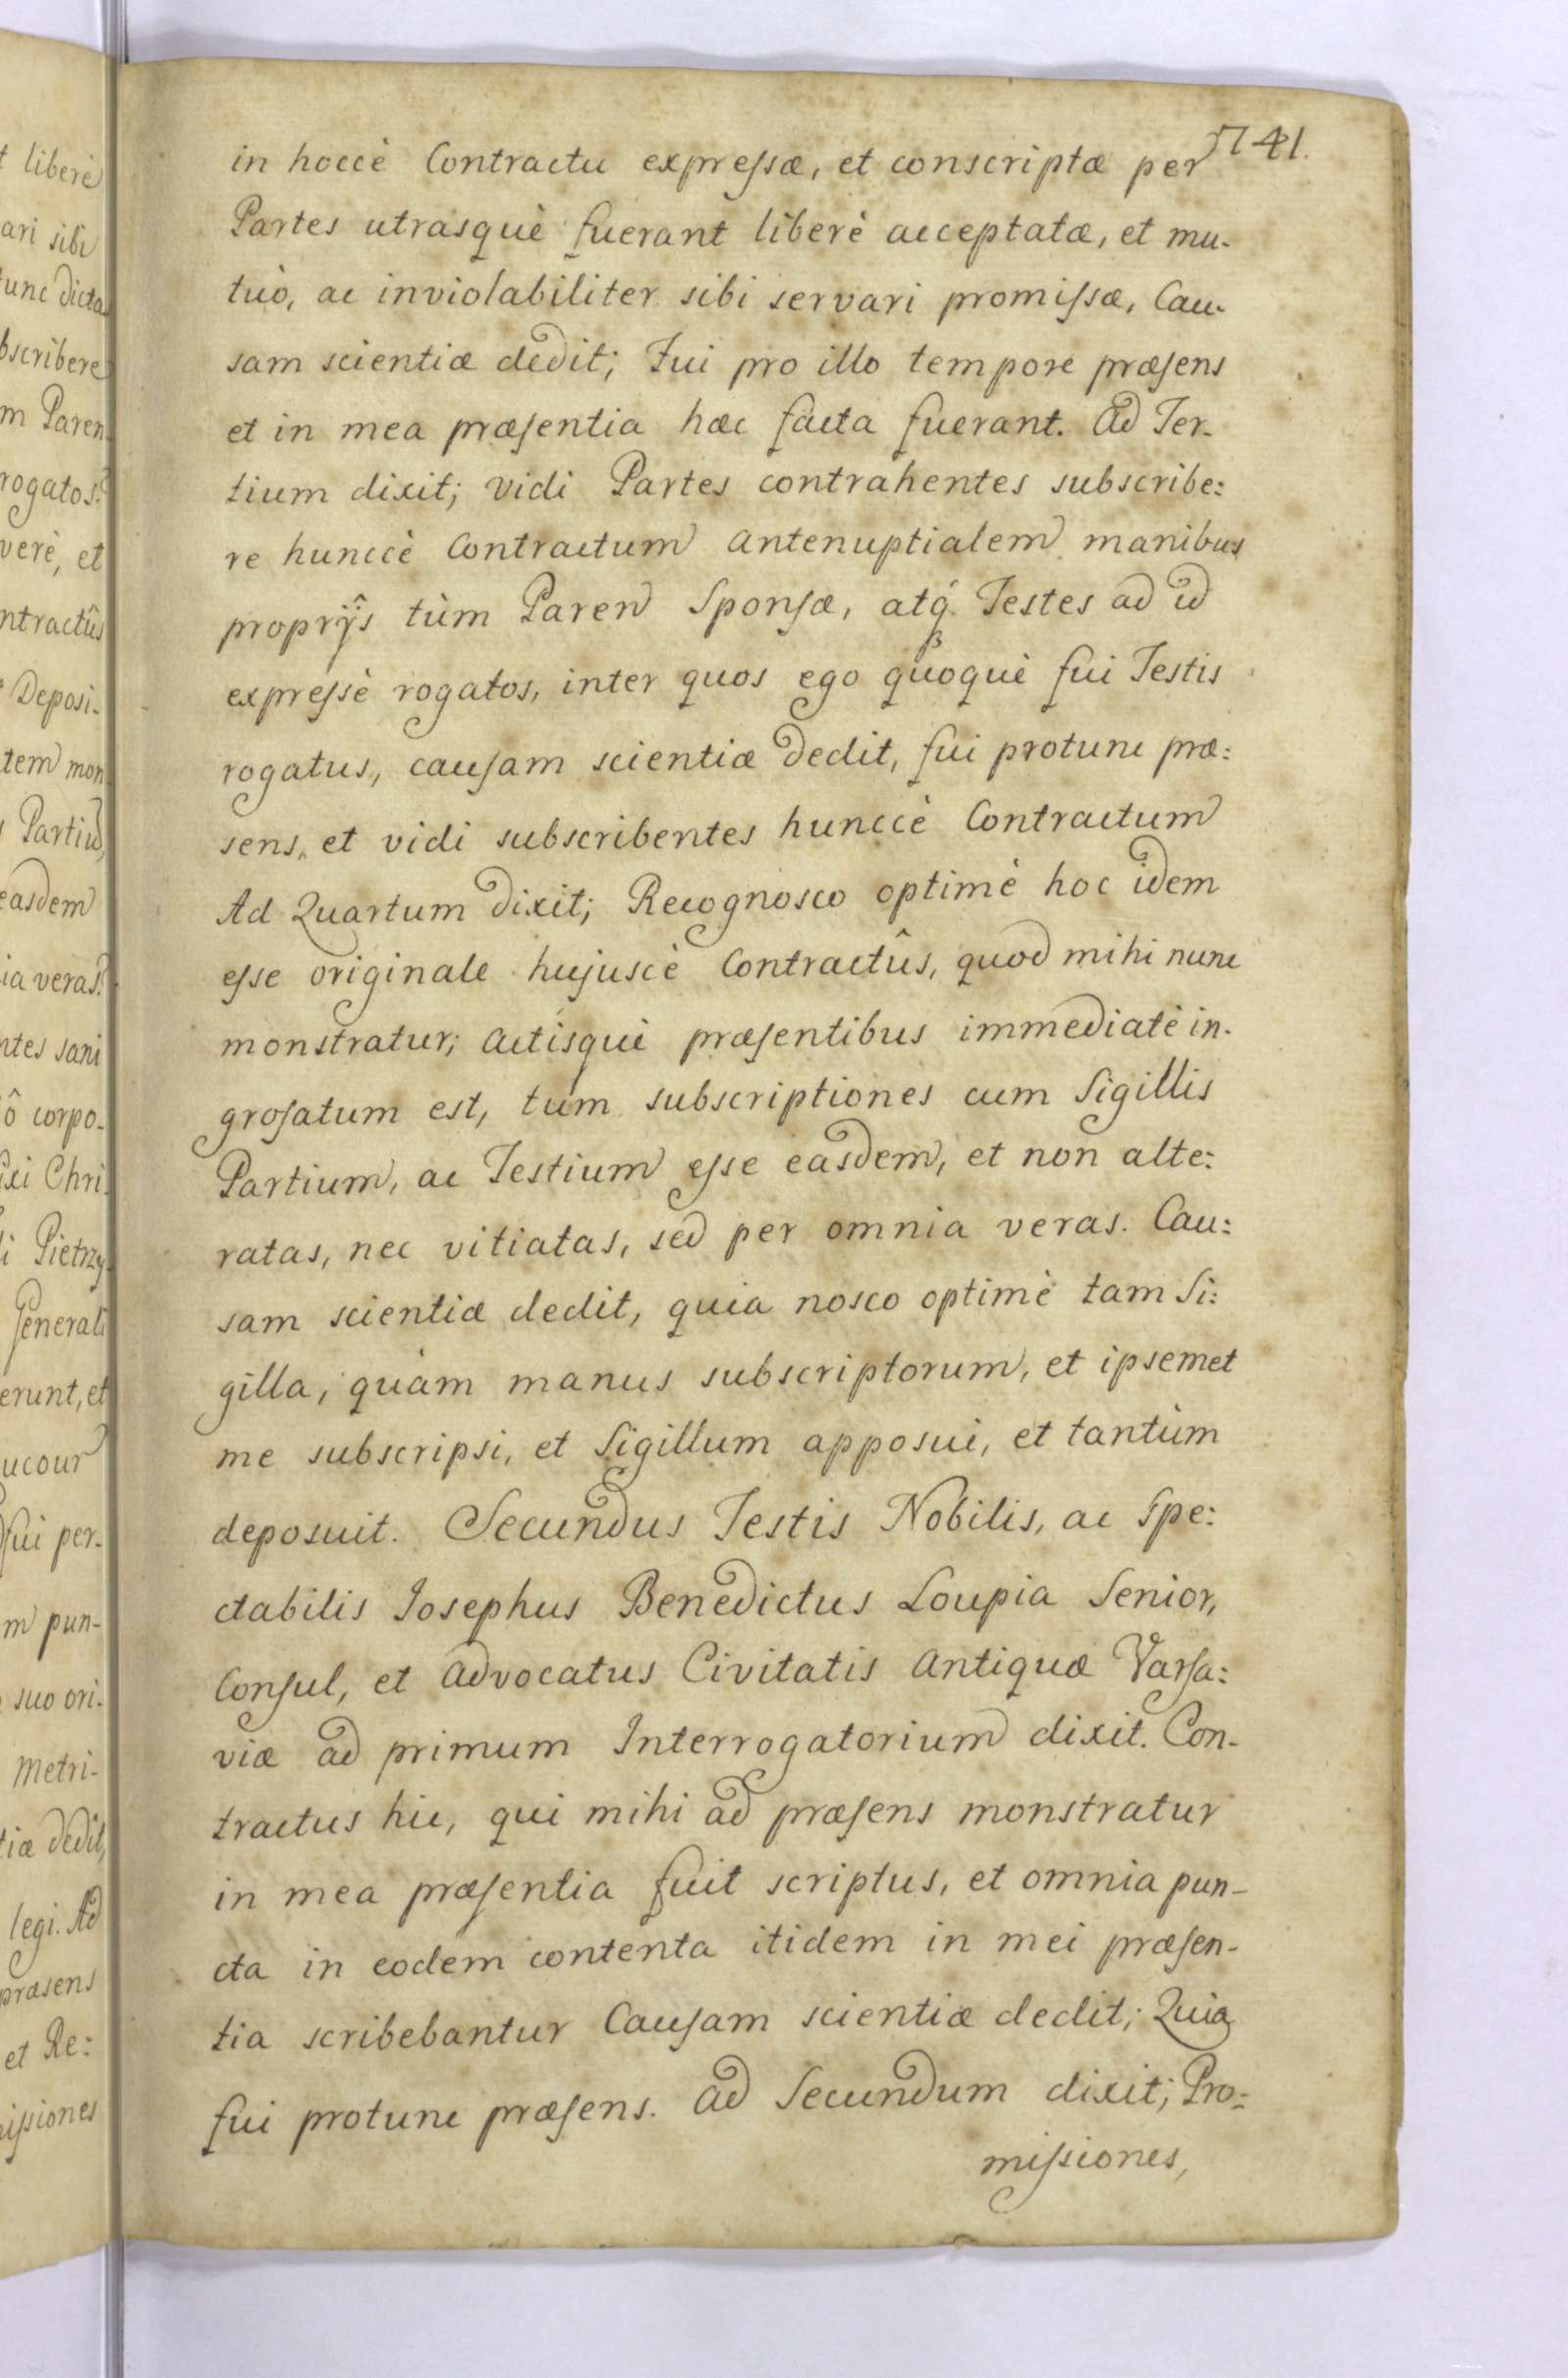 741.
in hoccè Contractu expreſsæ, et conscriptæ per
Partes utrasquè fuerant liberè acceptatæ, et mu-
tuò, ac inviolabiliter sibi servari promiſsæ, Cau-
sam scientiæ dedit; Fui pro illo tempore præſens
et in mea præſentia hæc facta fuerant. Ad Ter-
tium dixit; vidi Partes contrahentes subscribe:
re hunccè Contractum antenuptialem manibus
proprÿs tùm Paren Sponſæ, atq́ Testes ad id
expreſsè rogatos, inter quos ego quoquè fui Testis
rogatus, cauſam scientiæ dedit, fui protunc præ:
sens, et vidi subscribentes hunccè Contractum
Ad Quartum dixit; Recognosco optimè hoc idem
eſse originale hujuscè Contractûs, quod mihi nunc
monstratur; actisquè præſentibus immediatè in-
groſatum est, tum subscriptiones cum Sigillis
Partium, ac Testium eſse easdem, et non alte:
ratas, nec vitiatas, sed per omnia veras. Cau:
sam scientiæ dedit, quia nosco optimè tam Si:
gilla, quàm manus subscriptorum, et ipsemet
me subscripsi, et Sigillum apposui, et tantùm
deposuit. Secundus Testis Nobilis, ac Spe:
ctabilis Josephus Benedictus Loupia Senior,
Conſul, et Advocatus Civitatis Antiquæ Varſa:
viæ ad primum Interrogatorium dixit. Con-
tractus hic, qui mihi ad præſens monstratur
in mea præſentia fuit scriptus, et omnia pun-
cta in eodem contenta itidem in mei præſen-
tia scribebantur Cauſam scientiæ dedit; Quia
fui protunc præſens. Ad Secundum dixit; Pro:
miſsiones,